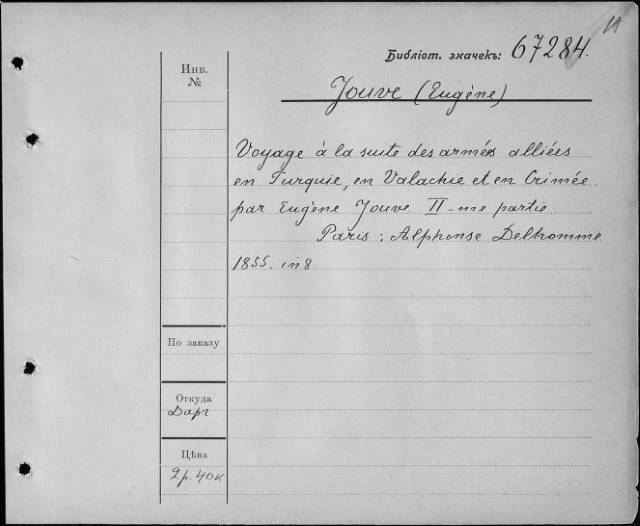 Библіот. значекъ: 67284.
Инв.
№
Jouve (Eugène)
Voyage à la suite des armées alliées
en Turquie, en Valachie et en Crimée
par Eugène Jouve II-me partie
Paris: Alphonse Delhomme
1855. in 8
По заказу
Откуда
Дарг
Цѣна
2р. 40к